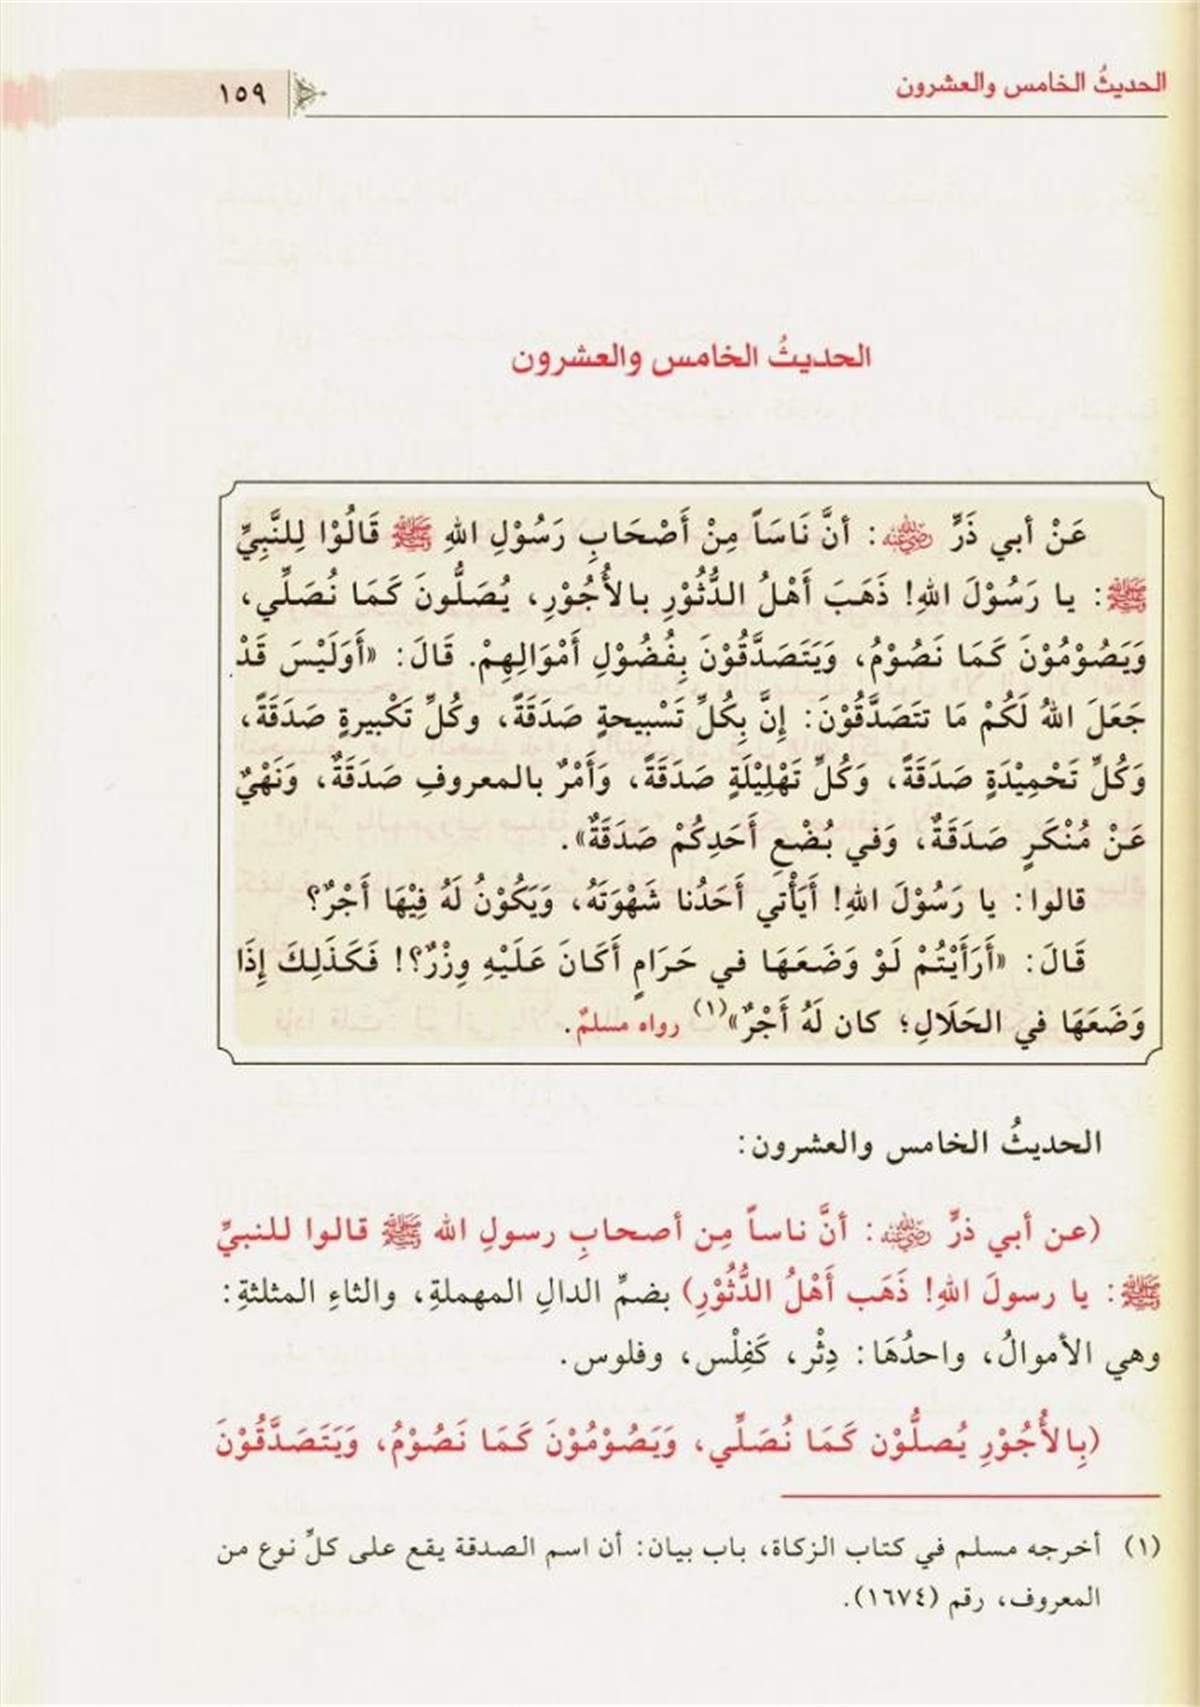 الحديثُ الخامس والعشرون
١٥٩
الحديثُ الخامس والعشرون
عَنْ أبي ذَرٍّ رضي الله عنه: أنَّ نَاسَاً مِنْ أَصْحَابِ رَسُوْلِ اللهِ ﷺ قَالُوْا لِلنَّبِيِّ
ﷺ: يا رَسُوْلَ اللهِ! ذَهَبَ أَهْلُ الدُّثُوْرِ بالأُجُوْرِ، يُصَلُّونَ كَمَا نُصَلِّي،
وَيَصُوْمُوْنَ كَمَا نَصُوْمُ، وَيَتَصَدَّقُوْنَ بِفُضُوْلِ أَمْوَالِهِمْ. قَالَ: «أَوَلَيْسَ قَدْ
جَعَلَ اللهُ لَكُمْ مَا تتَصَدَّقُوْنَ: إِنَّ بِكُلِّ تَسْبيحةٍ صَدَقَةً، وكُلِّ تَكْبيرةٍ صَدَقَةً،
وَكُلِّ تَحْمِيْدَةٍ صَدَقَةً، وَكُلِّ تَهْلِيْلَةٍ صَدَقَةً، وَأَمْرٌ بالمعروفِ صَدَقَةٌ، وَنَهْيٌ
عَنْ مُنْكَرٍ صَدَقَةٌ، وَفي بُضْعِ أَحَدِكُمْ صَدَقَةٌ».
قالوا: يا رَسُوْلَ اللهِ! أَيَأْتي أَحَدُنا شَهْوَتَهُ، وَيَكوْنُ لَهُ فِيْهَا أَجْرٌ؟
قَالَ: «أَرَأَيْتُمْ لَوْ وَضَعَهَا في حَرَامٍ أَكَانَ عَلَيْهِ وِزْرٌ؟! فَكَذَلِكَ إِذَا
وَضَعَهَا في الحَلَالِ؛ كان لَهُ أَجْرٌ»(١) رواه مسلمٌ.
الحديثُ الخامس والعشرون:
(عن أبي ذرٍّ رضي الله عنه: أنَّ ناساً مِن أصحابِ رسولِ الله ﷺ قالوا للنبيِّ
ﷺ: يا رسولَ اللهِ! ذَهَب أَهْلُ الدُّثُوْرِ) بضمِّ الدالِ المهملةِ، والثاءِ المثلثةِ:
وهي الأموالُ، واحدُهَا: دِثْر، كَفِلْس، وفلوس.
(بِالأُجُوْرِ يُصلُّوْن كَمَا نُصَلِّي، وَيَصُوْمُوْنَ كَمَا نَصُوْمُ، وَيَتَصَدَّقُوْنَ
(١) أخرجه مسلم في كتاب الزكاة، باب بيان: أن اسم الصدقة يقع على كلِّ نوع من
المعروف، رقم (١٦٧٤).